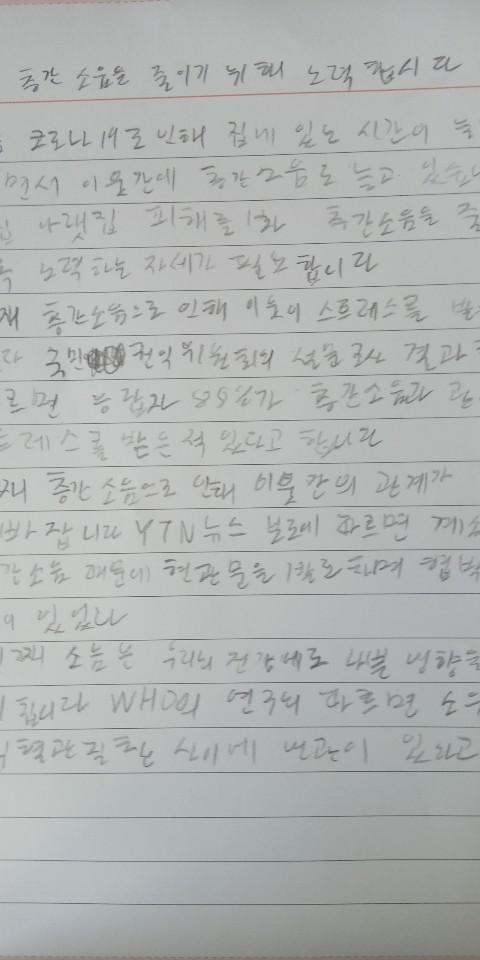 층간 소음을 줄이기 위해 노력 합시다
코로나19로 인해 집에 있는 시간이 늘
면서 이웃간에 층간소음도 늘고 있습니
나랫집 피해를 층간소음을 줄
노력하는 자세가 필요합니다
째 층간소음으로 인해 이웃이 스트레스를 받
다 국민 권익위원회의 설문조사 결과
르면 응답자 88%가 층간소음과 관
트레스를 받은 적 있다고 합니다
째 층간 소음으로 인해 이웃 간의 관계가
빠집니다 YTN뉴스 보도에 따르면 계속
간소음 때문에 현관문을 1하며 협박
이 있었다
째 소음은 우리의 건강에도 나쁜 영향을
칩니다 WHO의 연구의 따르면 소음
혈관질환 사이에 연관이 있라고